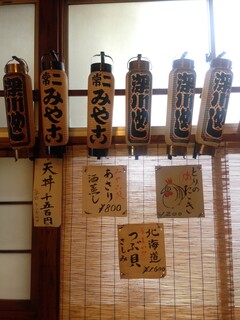 深川めし
常二
みやこ
常二
みやこ
深川めし
深川めし
深川めし
天丼 千五百円
あさり
酒蒸し
¥800
とりの
北海道
つぶ貝
さしみ